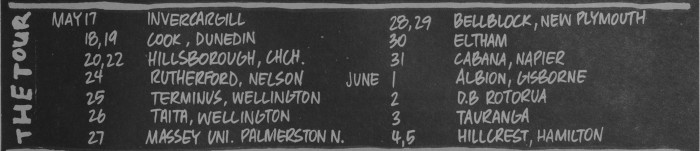 THE TOUR
MAY 17 INVERCARGILL
18,19 COOK, DUNEDIN
20,22 HILLSBOROUGH, CHCH.
24 RUTHERFORD, NELSON
25 TERMINUS, WELLINGTON
26 TAITA, WELLINGTON
27 MASSEY UNI. PALMERSTON N.
28,29 BELLBLOCK, NEW PLYMOUTH
30 ELTHAM
31 CABANA, NAPIER
JUNE 1 ALBION, GISBORNE
2 D.B ROTORUA
3 TAURANGA
4,5 HILLCREST, HAMILTON